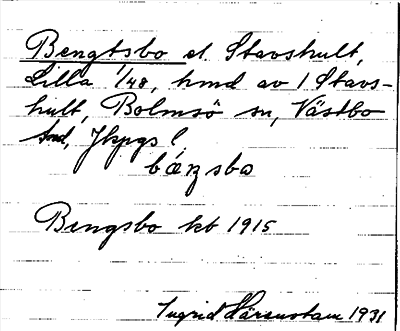 Bengtsbo el. Stavshult,
Lilla 1/48, hmd av 1 Stavs-
hult, Bolmsö sn, Västbo
hd, Jkpgs l.
Bengsbo kb 1915
Ingrid Härenstam 1931